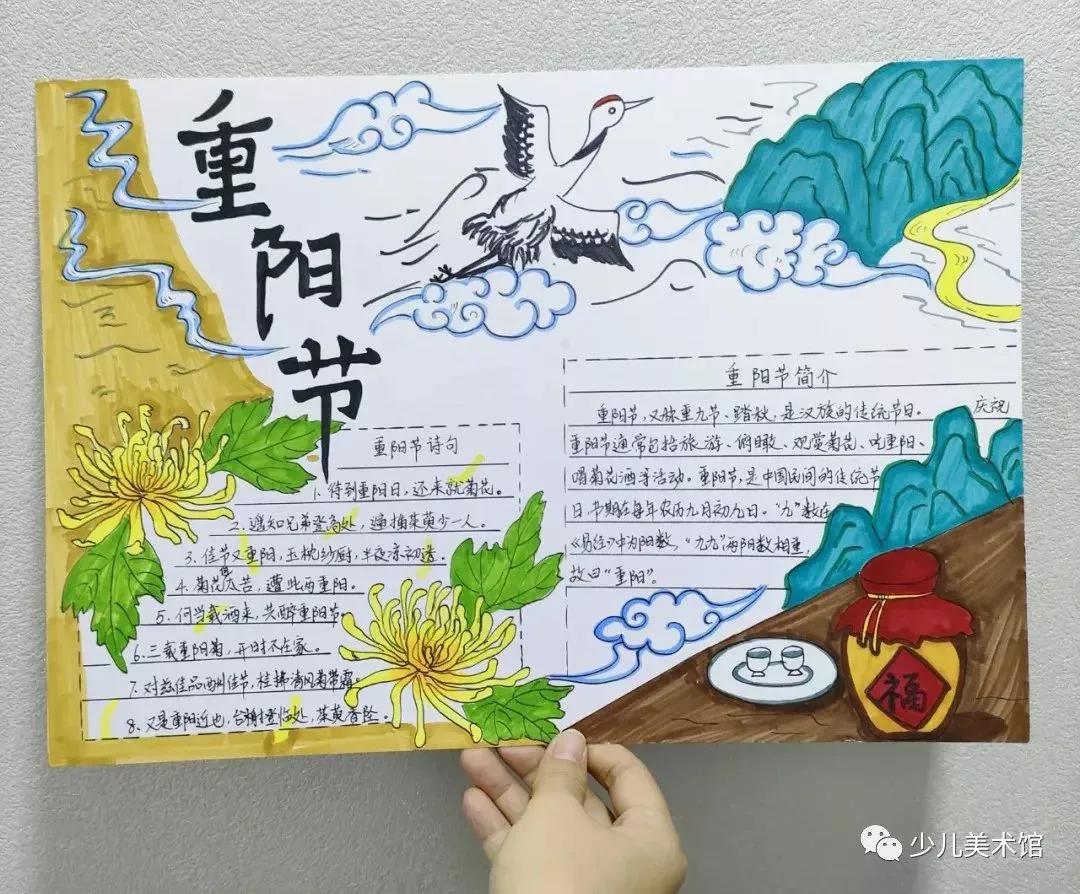 重阳节
重阳节诗句
1、待到重阳日，还来就菊花。
2、遥知兄弟登高处，遍插茱萸少一人。
3、佳节又重阳，玉枕纱厨，半夜凉初透。
4、菊花何太苦，遭此两重阳。
5、何当载酒来，共醉重阳节
6、三载重阳菊，开时不在家。
7、对兹佳品酬佳节，桂拂清风菊带霜。
8、又是重阳近也，台榭登临处，茱萸香坠。
重阳节简介
重阳节，又称重九节、踏秋，是汉族的传统节日。庆祝
重阳节通常包括旅游、俯瞰、观赏菊花、吃重阳、
喝菊花酒等活动。重阳节，是中国民间的传统节
日，节期在每年农历九月初九日。“九”数在
《易经》中为阳数，“九九”两阳数相重，
故曰“重阳”。
福
少儿美术馆